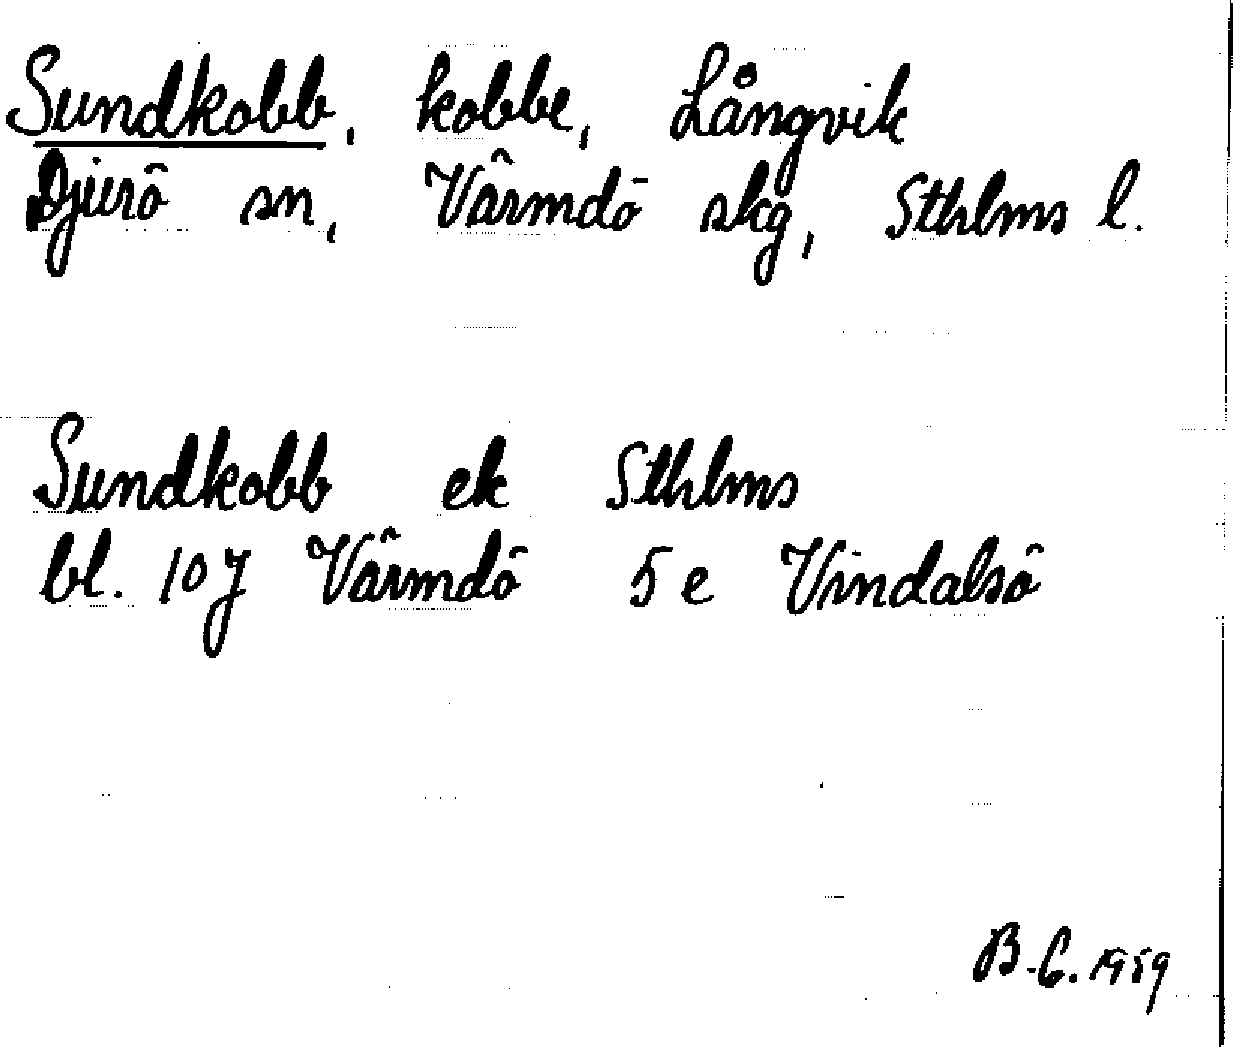 Sundkobb, kobbe, Långvik
Djurö sn, Värmdö skg, Sthlms l.
Sundkobb ek Sthlms
bl. 10J Värmdö 5 e Vindalsö
B.C. 1959